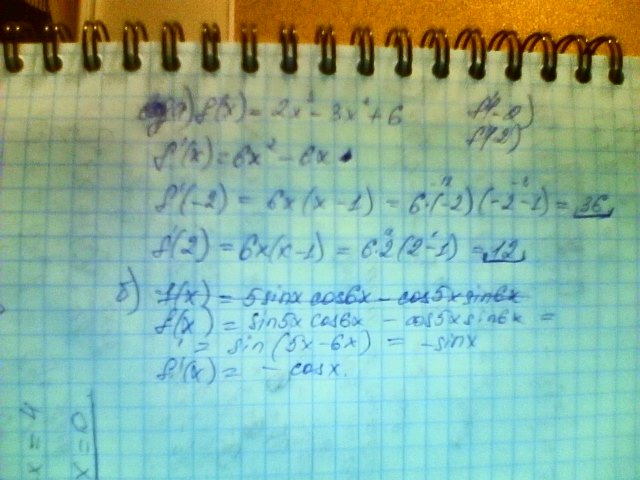 а) f(x) = 2x³ - 3x² + 6
f'(-2)
f'(2)
f'(x) = 6x² - 6x
f'(-2) = 6x(x-1) = 6·(-2)(-2-1) = 36
f'(2) = 6x(x-1) = 6·2(2-1) = 12
б) f(x) = 5sinx cos6x - cos5x sin6x
f(x) = sin5x cos6x - cos5x sin6x =
= sin(5x-6x) = -sinx
f'(x) = - cosx.
x = 4
x = 0